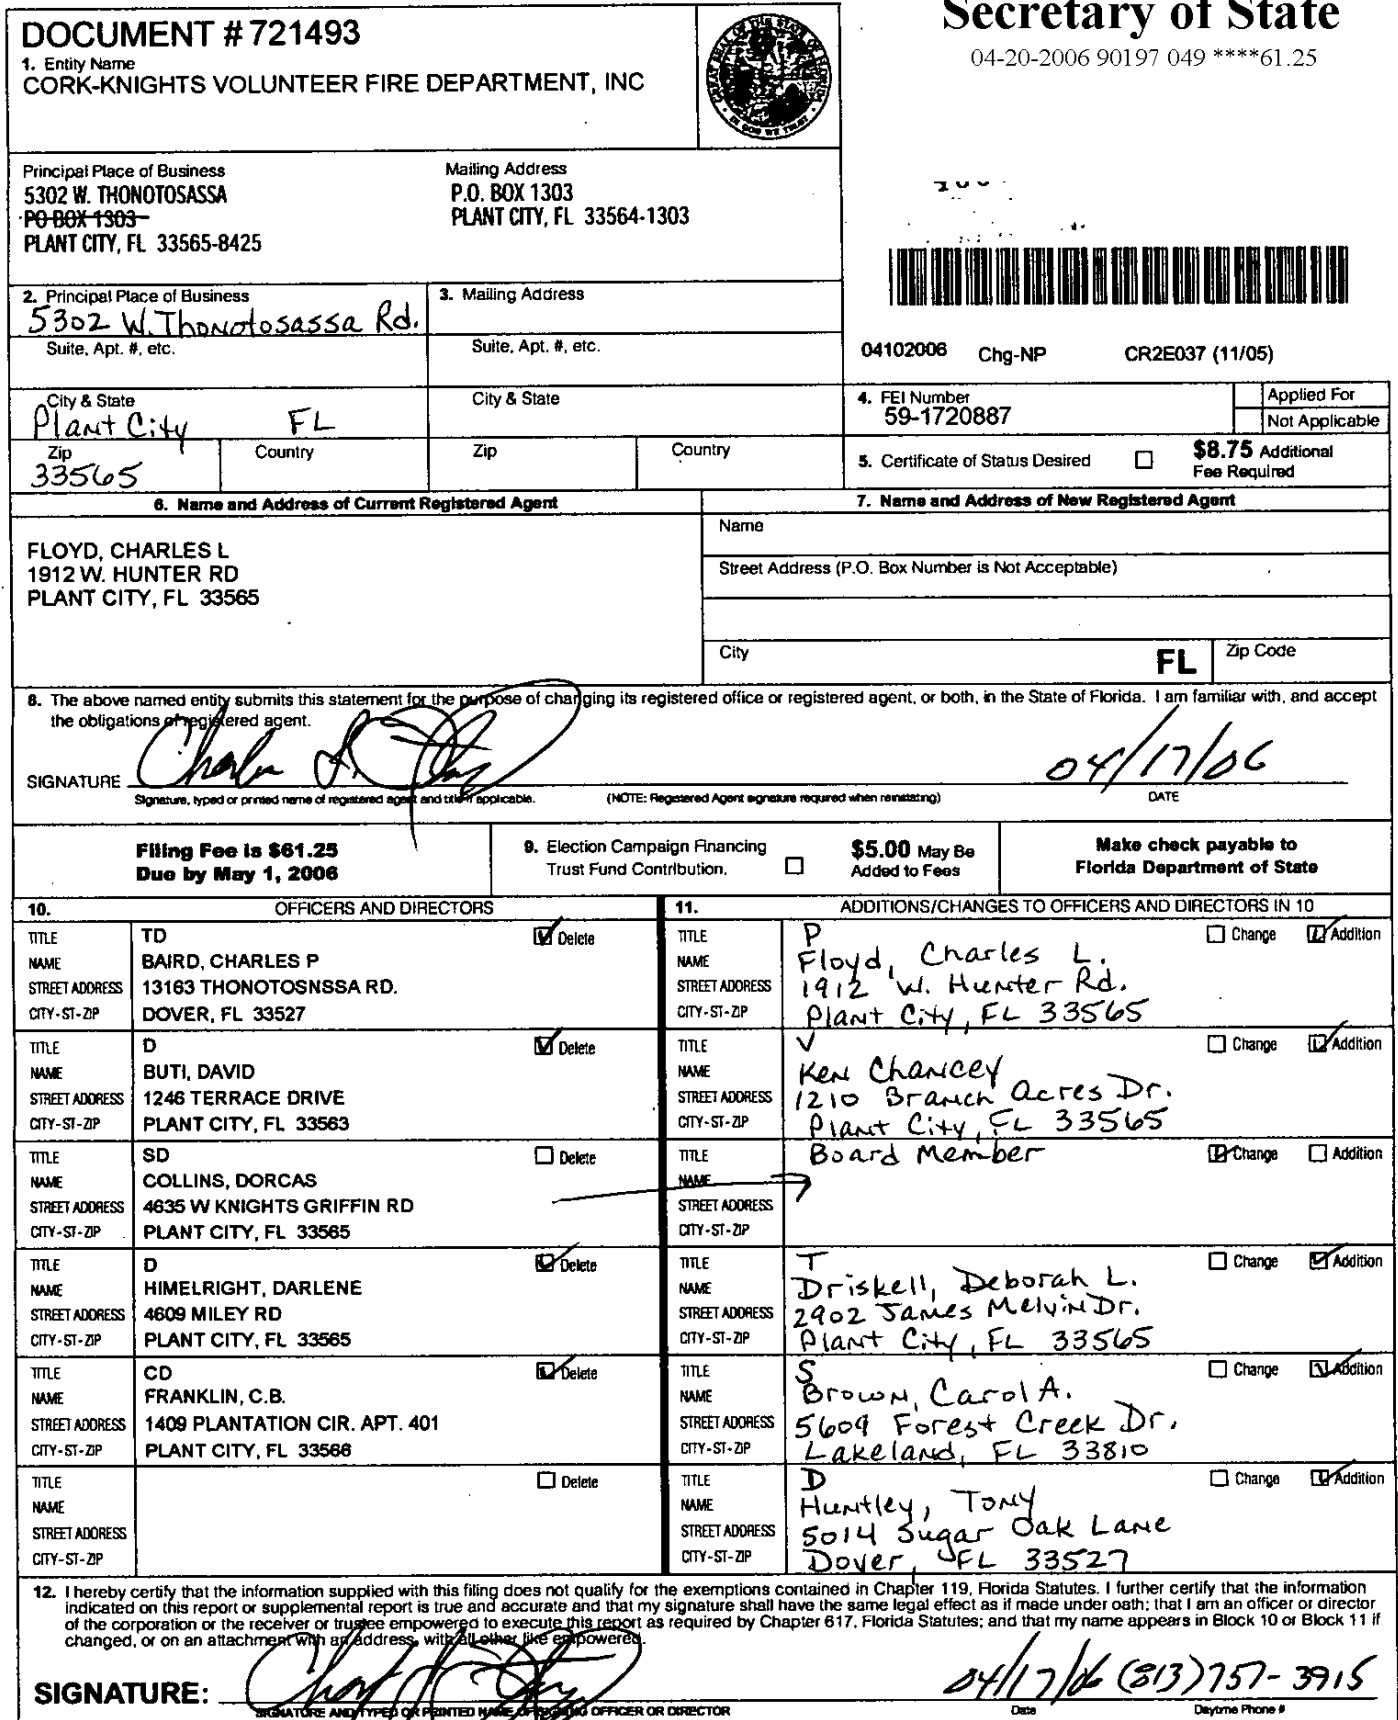 Secretary of State
04-20-2006 90197 049 ****61.25
DOCUMENT # 721493
1. Entity Name
CORK-KNIGHTS VOLUNTEER FIRE DEPARTMENT, INC
Principal Place of Business
5302 W. THONOTOSASSA
PO BOX 1303
PLANT CITY, FL 33565-8425
Mailing Address
P.O. BOX 1303
PLANT CITY, FL 33564-1303
2. Principal Place of Business
5302 W. Thonotosassa Rd.
Suite, Apt. #, etc.
City & State
Plant City FL
Zip
33565
Country
3. Mailing Address
Suite, Apt. #, etc.
City & State
Zip
Country
04102006 Chg-NP CR2E037 (11/05)
4. FEI Number
59-1720887
Applied For
Not Applicable
5. Certificate of Status Desired
$8.75 Additional
Fee Required
6. Name and Address of Current Registered Agent
FLOYD, CHARLES L
1912 W. HUNTER RD
PLANT CITY, FL 33565
7. Name and Address of New Registered Agent
Name
Street Address (P.O. Box Number is Not Acceptable)
City
FL
Zip Code
8. The above named entity submits this statement for the purpose of changing its registered office or registered agent, or both, in the State of Florida. I am familiar with, and accept
the obligations of registered agent.
SIGNATURE Charles L. Floyd 04/17/06
Signature, typed or printed name of registered agent and title if applicable. (NOTE: Registered Agent signature required when reinstating) DATE
Filing Fee is $61.25
Due by May 1, 2006
9. Election Campaign Financing
Trust Fund Contribution.
$5.00 May Be
Added to Fees
Make check payable to
Florida Department of State
10. OFFICERS AND DIRECTORS
11. ADDITIONS/CHANGES TO OFFICERS AND DIRECTORS IN 10
TITLE TD Delete
NAME BAIRD, CHARLES P
STREET ADDRESS 13163 THONOTOSNSSA RD.
CITY-ST-ZIP DOVER, FL 33527
TITLE P Change Addition
NAME Floyd, Charles L.
STREET ADDRESS 1912 W. Hunter Rd.
CITY-ST-ZIP Plant City, FL 33565
TITLE D Delete
NAME BUTI, DAVID
STREET ADDRESS 1246 TERRACE DRIVE
CITY-ST-ZIP PLANT CITY, FL 33563
TITLE V Change Addition
NAME Ken Chancey
STREET ADDRESS 1210 Branch Acres Dr.
CITY-ST-ZIP Plant City, FL 33565
TITLE SD Delete
NAME COLLINS, DORCAS
STREET ADDRESS 4635 W KNIGHTS GRIFFIN RD
CITY-ST-ZIP PLANT CITY, FL 33565
TITLE Board Member Change Addition
NAME
STREET ADDRESS
CITY-ST-ZIP
TITLE D Delete
NAME HIMELRIGHT, DARLENE
STREET ADDRESS 4609 MILEY RD
CITY-ST-ZIP PLANT CITY, FL 33565
TITLE T Change Addition
NAME Driskell, Deborah L.
STREET ADDRESS 2902 James Melvin Dr.
CITY-ST-ZIP Plant City, FL 33565
TITLE CD Delete
NAME FRANKLIN, C.B.
STREET ADDRESS 1409 PLANTATION CIR. APT. 401
CITY-ST-ZIP PLANT CITY, FL 33566
TITLE S Change Addition
NAME Brown, Carol A.
STREET ADDRESS 5609 Forest Creek Dr.
CITY-ST-ZIP Lakeland, FL 33810
TITLE Delete
NAME
STREET ADDRESS
CITY-ST-ZIP
TITLE D Change Addition
NAME Huntley, Tony
STREET ADDRESS 5014 Sugar Oak Lane
CITY-ST-ZIP Dover, FL 33527
12. I hereby certify that the information supplied with this filing does not qualify for the exemptions contained in Chapter 119, Florida Statutes. I further certify that the information
indicated on this report or supplemental report is true and accurate and that my signature shall have the same legal effect as if made under oath; that I am an officer or director
of the corporation or the receiver or trustee empowered to execute this report as required by Chapter 617, Florida Statutes; and that my name appears in Block 10 or Block 11 if
changed, or on an attachment with an address, with all other like empowered.
SIGNATURE: 04/17/06 (813)757-3915
SIGNATURE AND TYPED OR PRINTED NAME OF SIGNING OFFICER OR DIRECTOR Date Daytime Phone #